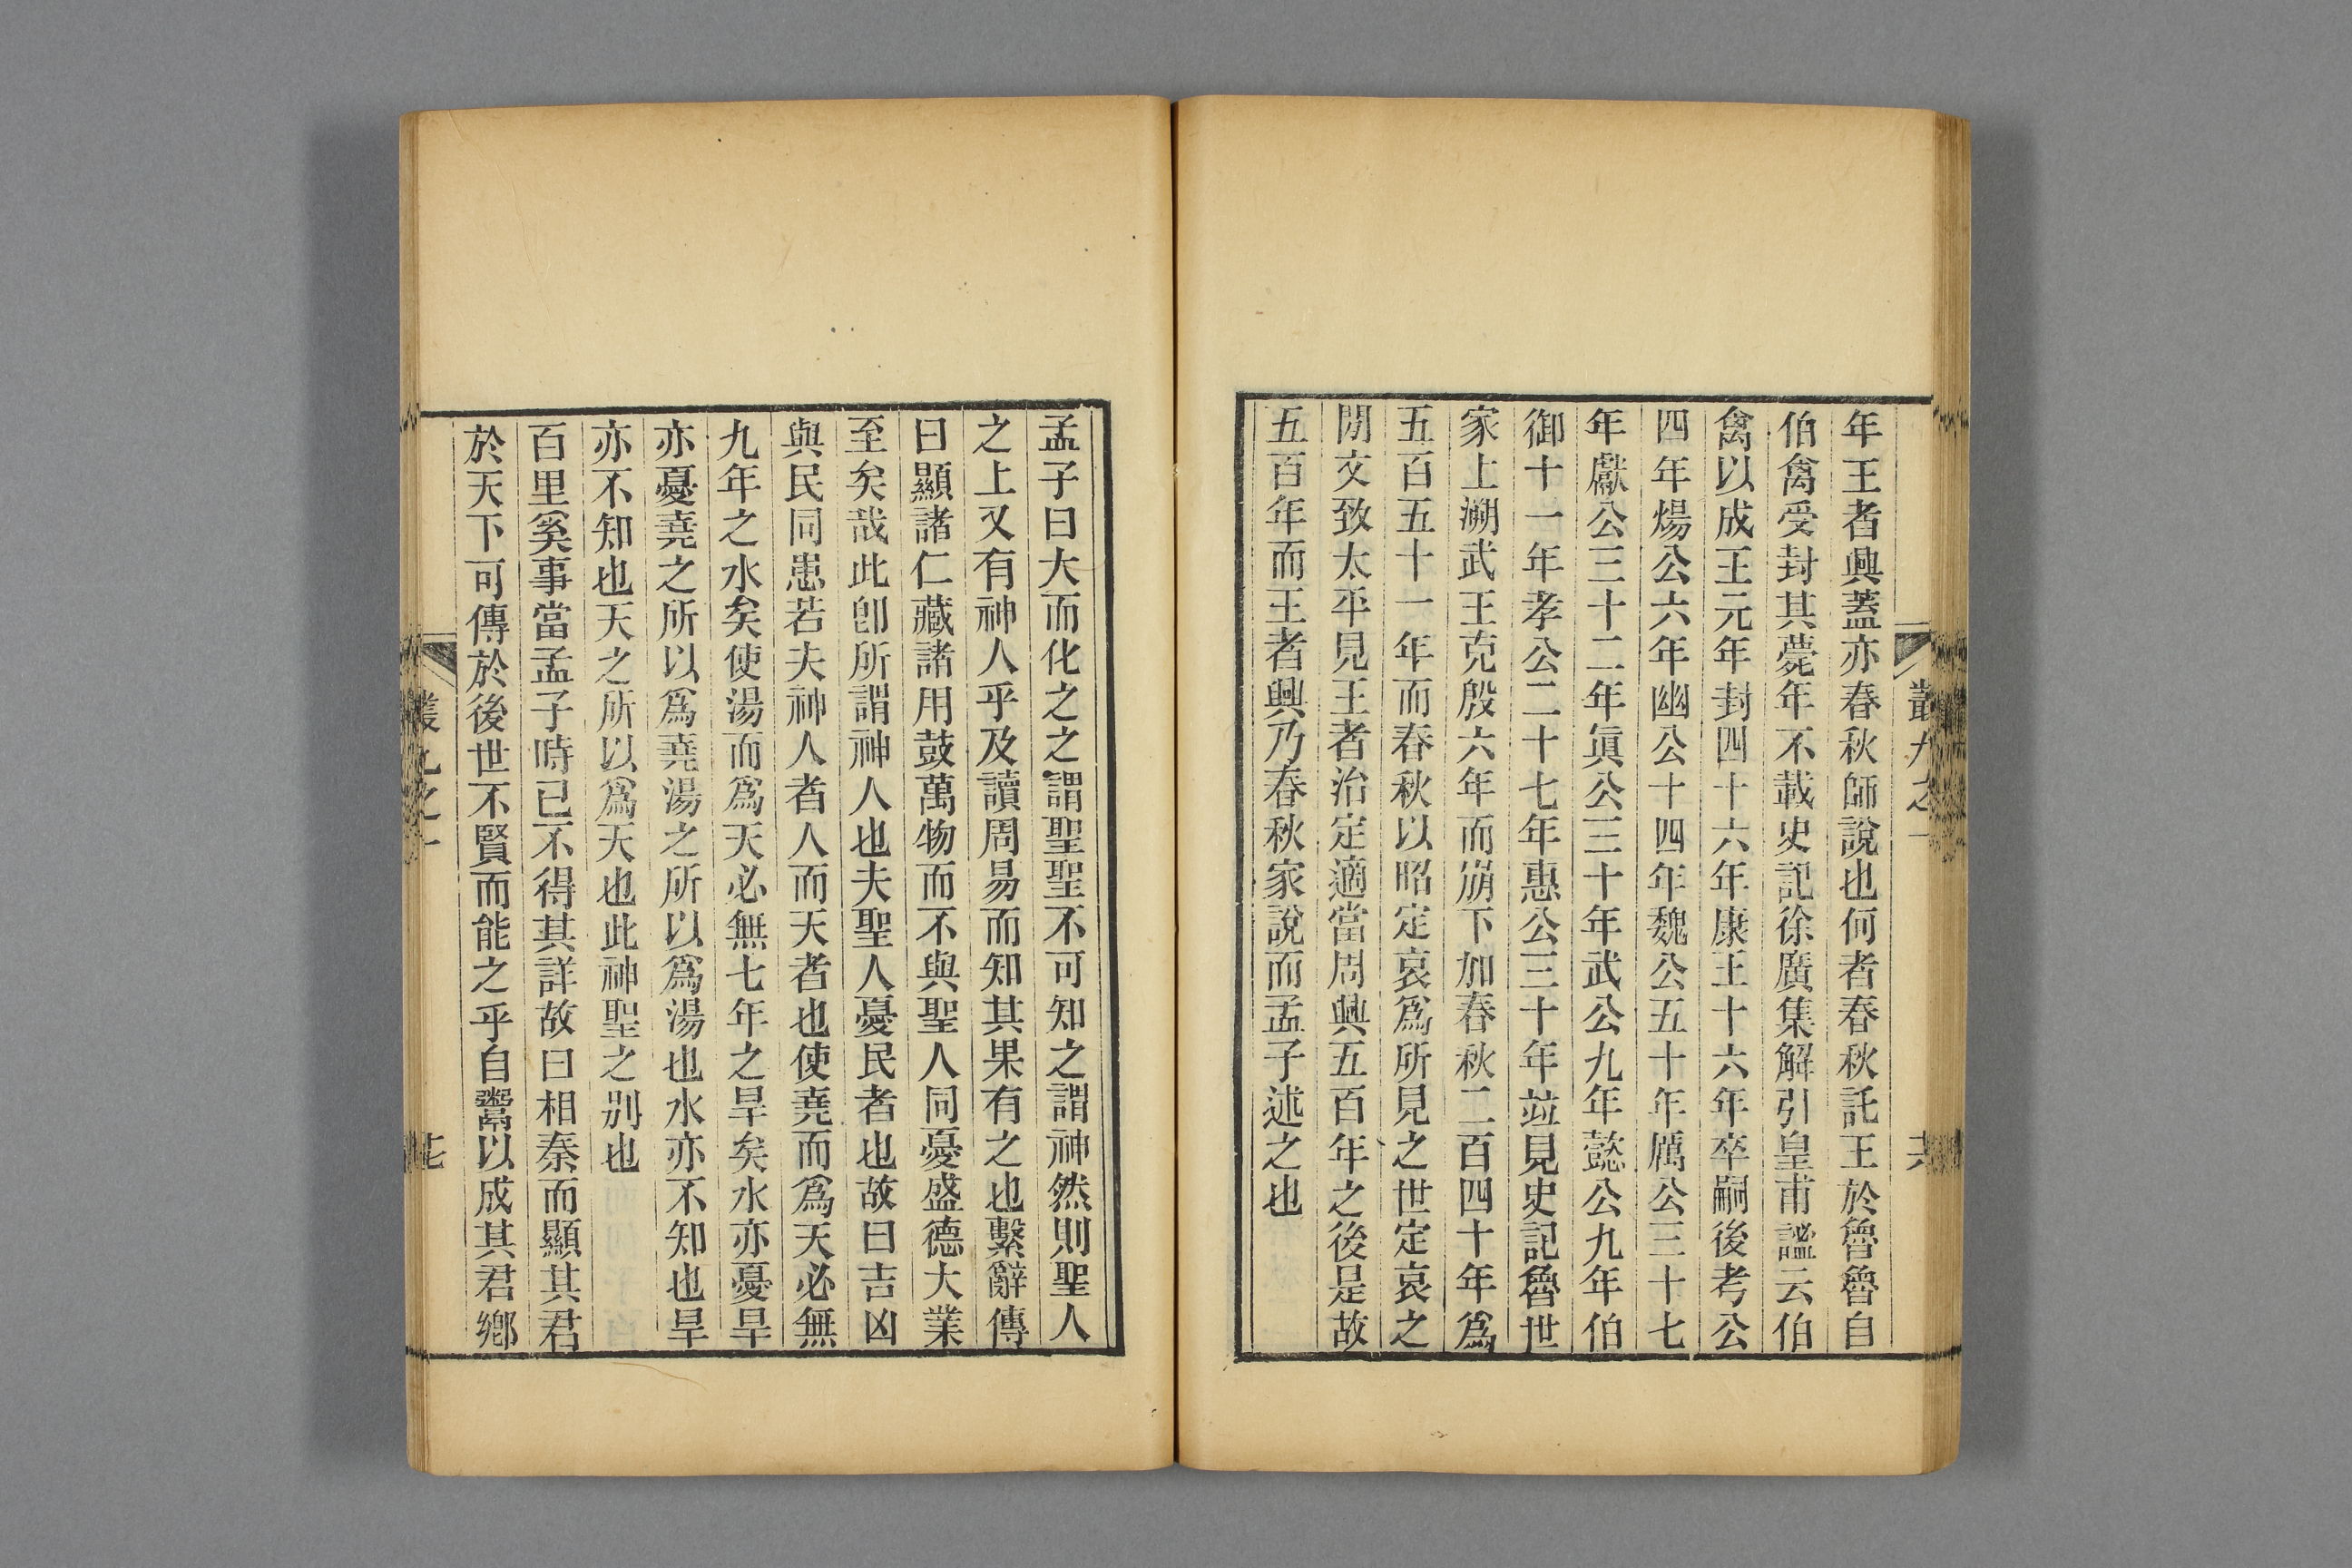 叢九之一
年王者興蓋亦春秋師說也何者春秋託王於魯魯自
伯禽受封其薨年不載史記徐廣集解引皇甫謐云伯
禽以成王元年封四十六年康王十六年卒嗣後考公
四年煬公六年幽公十四年魏公五十年厲公三十七
年獻公三十二年眞公三十年武公九年懿公九年伯
御十一年孝公二十七年惠公三十年竝見史記魯世
家上溯武王克殷六年而崩下加春秋二百四十年爲
五百五十一年而春秋以昭定哀爲所見之世定哀之
閒文致太平見王者治定適當周興五百年之後是故
五百年而王者興乃春秋家說而孟子述之也
孟子曰大而化之之謂聖聖不可知之謂神然則聖人
之上又有神人乎及讀周易而知其果有之也繫辭傳
曰顯諸仁藏諸用鼓萬物而不與聖人同憂盛德大業
至矣哉此卽所謂神人也夫聖人憂民者也故曰吉凶
與民同患若夫神人者人而天者也使堯而爲天必無
九年之水矣使湯而爲天必無七年之旱矣水亦憂旱
亦憂堯之所以爲堯湯之所以爲湯也水亦不知也旱
亦不知也天之所以爲天也此神聖之別也
百里奚事當孟子時已不得其詳故曰相秦而顯其君
於天下可傳於後世不賢而能之乎自鬻以成其君鄉
叢九之一